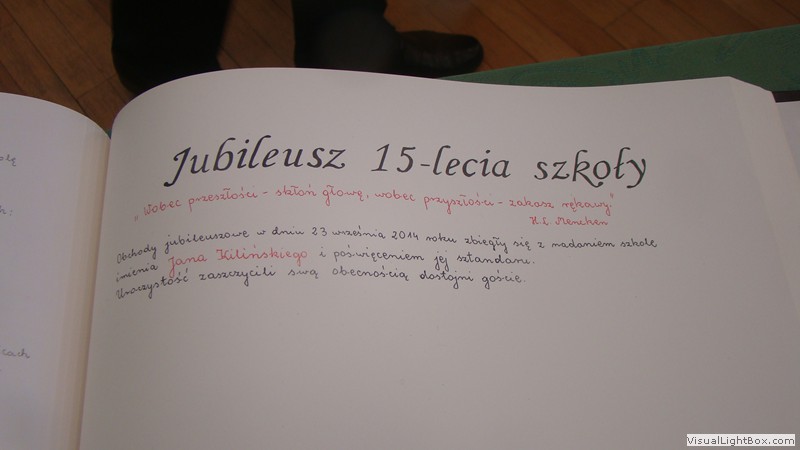 Jubileusz 15-lecia szkoły
„Wobec przeszłości - skłoń głowę, wobec przyszłości - zakasz rękawy."
H.L. Mencken
Obchody jubileuszowe w dniu 23 września 2014 roku zbiegły się z nadaniem szkole
imienia Jana Kilińskiego i poświęceniem jej sztandaru.
Uroczystość zaszczycili swą obecnością dostojni goście.
VisualLightBox.com